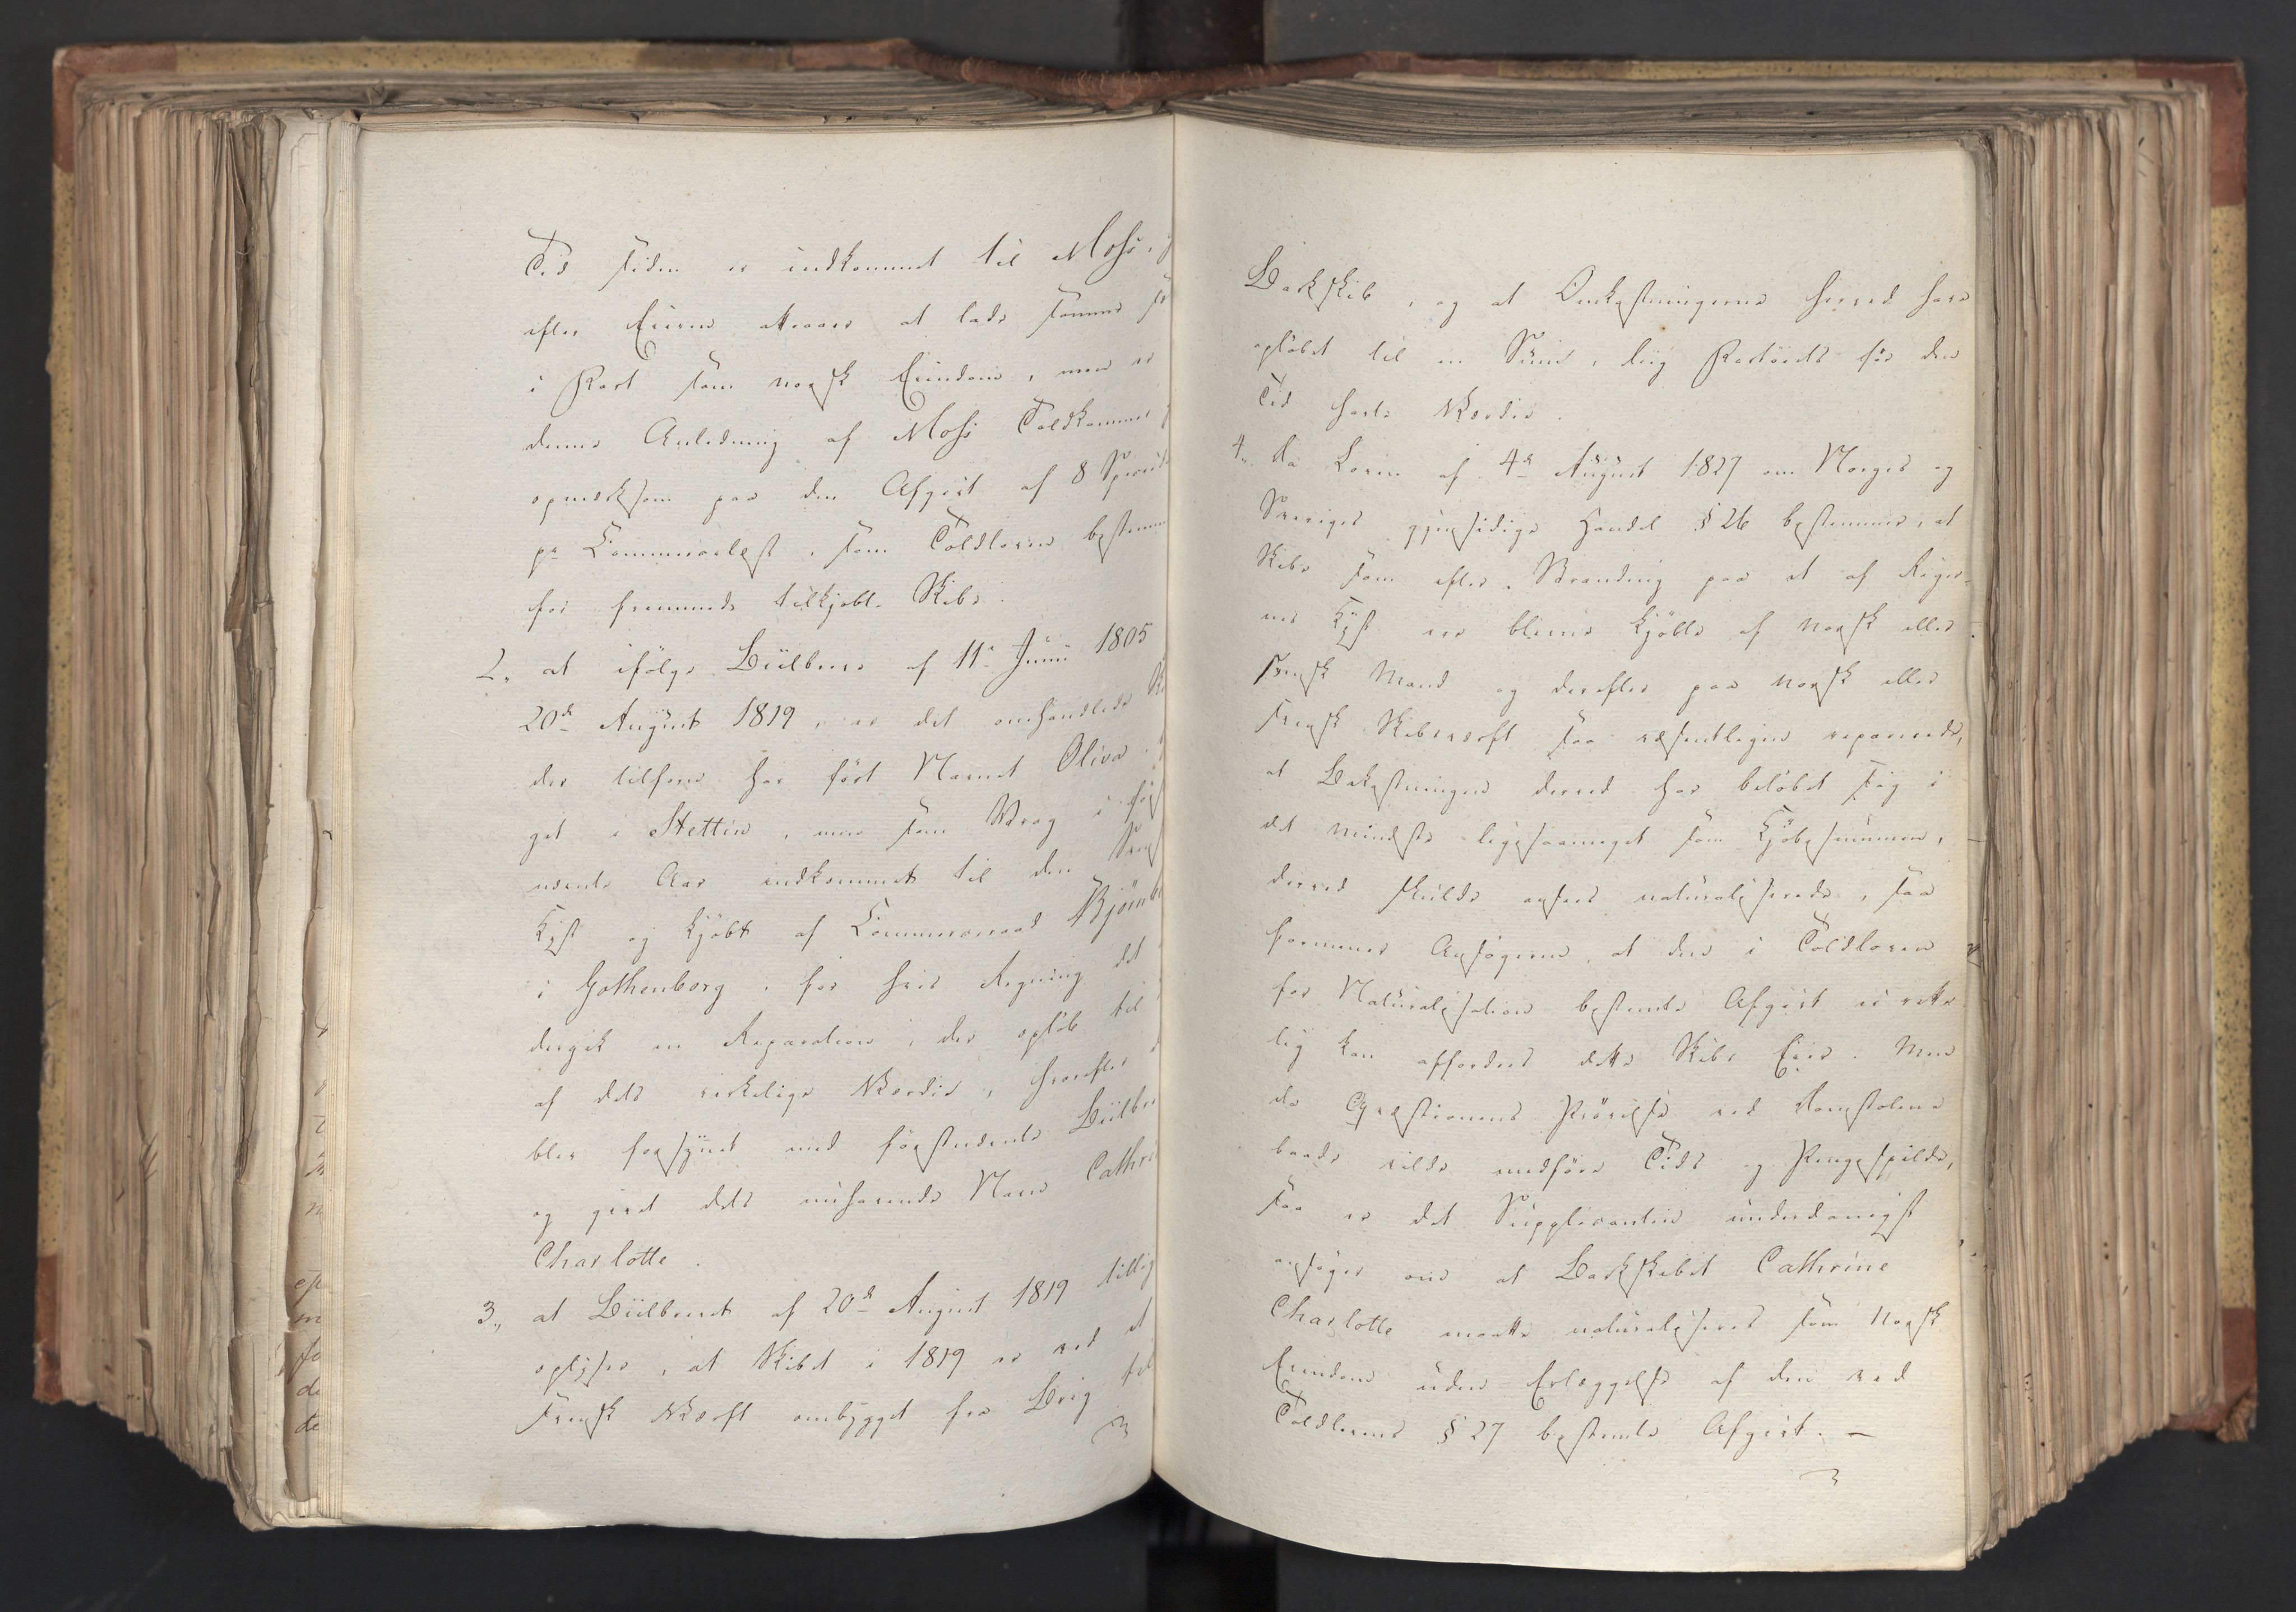 Tid siden er indkommet til Moss,
efter Eieren attraaer at lade samme
i Kart som norsk Eiendom, men er
denne Anledning af Moss Toldkammer
opmærksom paa den Afgivt af 8 Species
pr Commercelæst, som Toldloven bestemm
for fremmede tilkjøbte Skibe.
2, at ifølge Biilbreve af 11te Junii 1805
20de August 1819, er det omhandlede
der tilforn har ført Navnet Oliva
get i Stettin, men som Vrag i først
nævnte Aar indkommet til den Svensk
Kyst og kjøbt af Commerceraad Bjørnbe
i Gothenborg, for hvis Regning det
dergik en Reparation, der opløb til
af dets virkelige Værdie, hvorefter
blev forsynet med førstnævnte Biilbre
og givet dets nuhavende Navn Cathri
Charlotte.
3, at Biilbrevet af 20de August 1819 tillig
oplyser, at Skibet i 1819 er ved et
svensk Værft ombygget fra Brig til
Barkskib, og at Omkostningerne herved have
opløbet til en Summa, liig Fartøiets før den
Tid havte Værdie.
4, da Loven af 4de August 1827 om Norges og
Sverriges gjensidige Handel § 26 bestemmer, at
Skibe som efter Stranding paa et af Riger-
nes Kyst ere blevne kjøbte af norsk eller
svensk Mand og derefter paa norsk eller
svensk Skibsværft saa væsentligen reparerede,
at Bekostningen derved har beløbet sig i
det mindste ligesaameget som Kjøbesummen,
derved skulde ansees naturaliserede, saa
formener Ansøgeren, at den i Toldloven
for Naturalisation bestemte Afgivt ei rette-
lig kan affordres dette Skibs Eier. Men
da Qvæstionens Prøvelse ved Domstolene
baade vilde medføre Tids og Pengespilde,
saa er det Supplicanten underdanigst
ansøger om at Barkskibet Cathrine
Charlotte maatte naturaliseres som norsk
Eiendom uden Erlæggelse af den ved
Toldlovens § 27 bestemte Afgivt. —